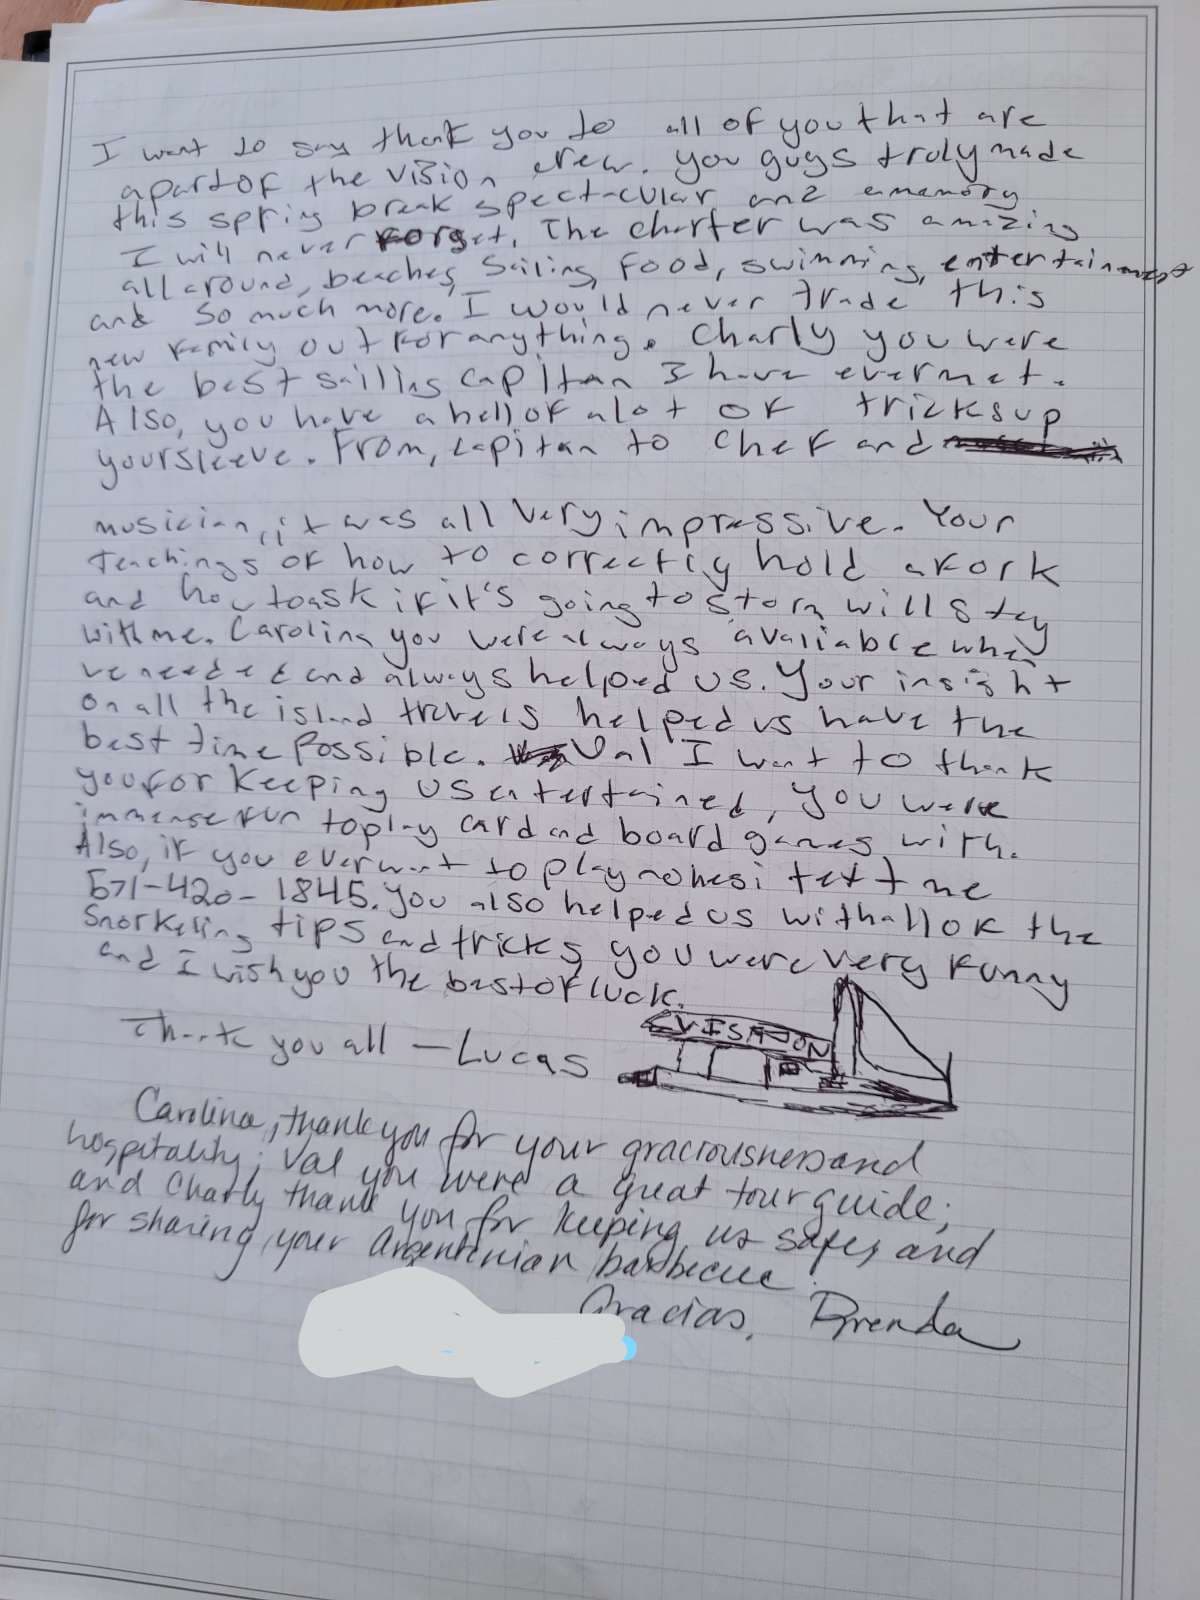 I want to say thank you to all of you that are
apart of the vision crew. you guys truly made
this spring break spectacular and a memory
I will never forget. The charter was amazing
all around, beaches, sailing, food, swimming, entertainment
and so much more. I would never trade this
new family out for anything. Charly you were
the best sailing capitan I have ever met.
Also, you have a hell of alot of tricks up
your sleeve. From, capitan to chef and
musician, it was all very impressive. Your
teachings of how to correctly hold a fork
and how to ask if it's going to storm will stay
with me. Carolina you were always avaliable when
we needed and always helped us. Your insight
on all the island travels helped us have the
best time possible. Val I want to thank
you for keeping us entertained, you were
immense fun to play card and board games with.
Also, if you ever want to play text me
571-420-1845. you also helped us with all of the
snorkeling tips and tricks, you were very funny
and I wish you the best of luck.
Thank you all - Lucas
VISION
Carolina, thank you for your graciousness and
hospitality; Val you were a great tour guide;
and Charly thank you for keeping us safe, and
for sharing your Argentinian barbecue.
Gracias, Brenda